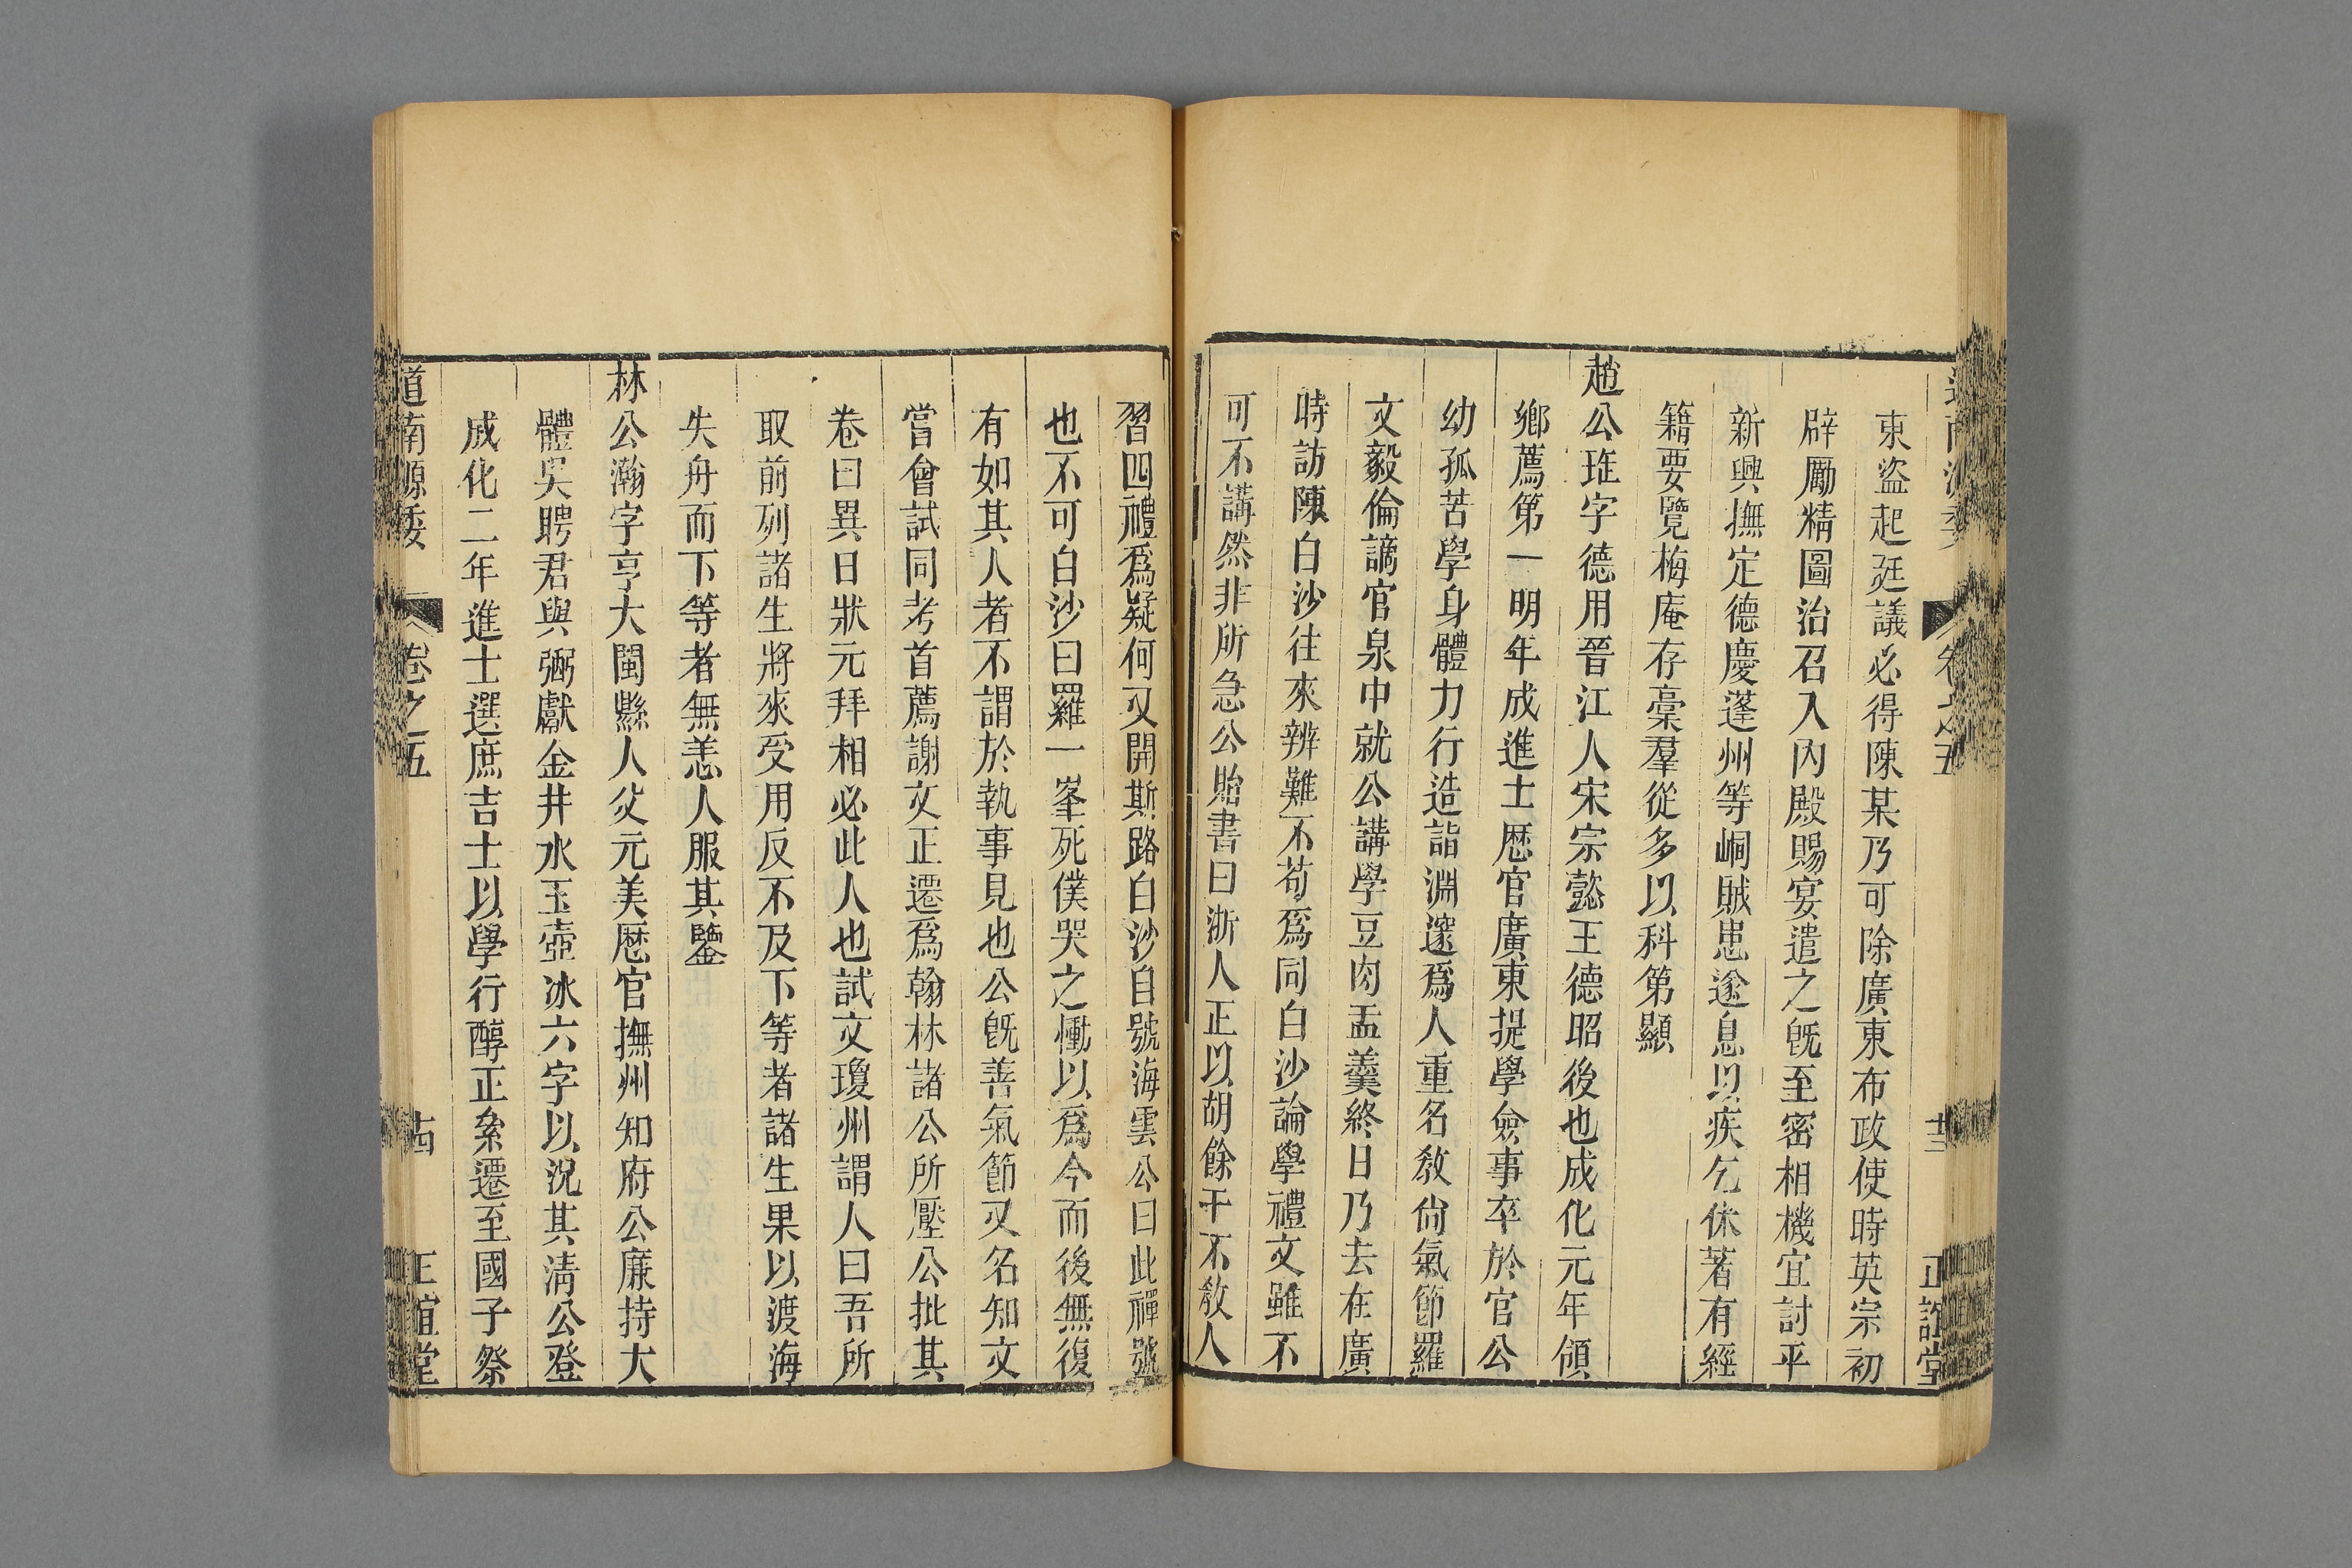 東盜起廷議必得陳某乃可除廣東布政使時英宗初
辟厲精圖治召入內殿賜宴遣之旣至密相機宜討平
新興撫定德慶蓬州等峒賊患遂息以疾乞休著有經
籍要覽梅庵存稾羣從多以科第顯
趙公珤字德用晉江人宋宗懿王德昭後也成化元年領
鄉薦第一明年成進士歷官廣東提學僉事卒於官公
幼孤苦學身體力行造詣淵邃爲人重名教尙氣節羅
文毅倫謫官泉中就公講學豆肉盂羹終日乃去在廣
時訪陳白沙往來辨難不苟爲同白沙論學禮文雖不
可不講然非所急公貽書曰浙人正以胡餘干不敎人
習四禮爲疑何又開斯路白沙自號海雲公曰此禪號
也不可白沙曰羅一峯死僕哭之慟以爲今而後無復
有如其人者不謂於執事見也公旣善氣節又名知文
當會試同考首薦謝文正遷爲翰林諸公所壓公批其
卷曰異日狀元拜相必此人也試文瓊州謂人曰吾所
取前列諸生將來受用反不及下等者諸生果以渡海
失舟而下等者無恙人服其鑒
林公瀚字亨大閩縣人父元美歷官撫州知府公廉持大
體吳聘君與弼獻金井水玉壺冰六字以況其淸公登
成化二年進士選庶吉士以學行醇正絫遷至國子祭
道南源委 卷之五 十四 正誼堂